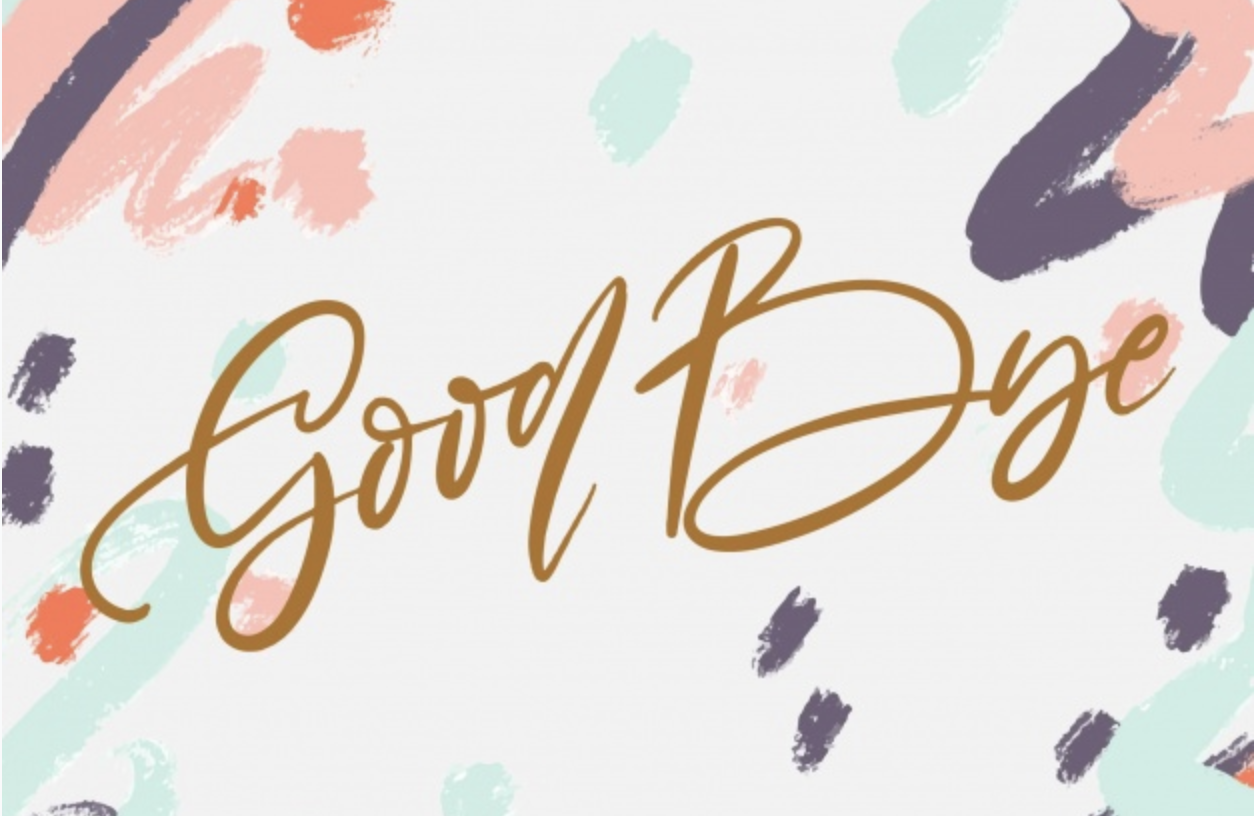 Good Bye